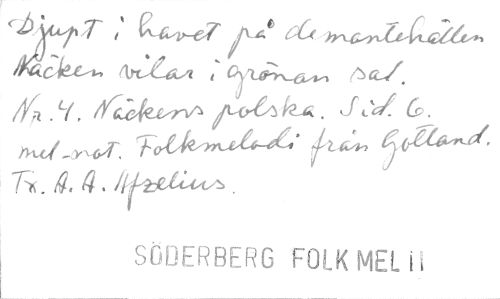 Djupt i havet på demantehällen
Näcken vilar i grönan sal.
Nr. 4. Näckens polska. Sid. 6.
mel-not. Folkmelodi från Gotland.
Tx. A. A. Afzelius.
SÖDERBERG FOLKMEL II